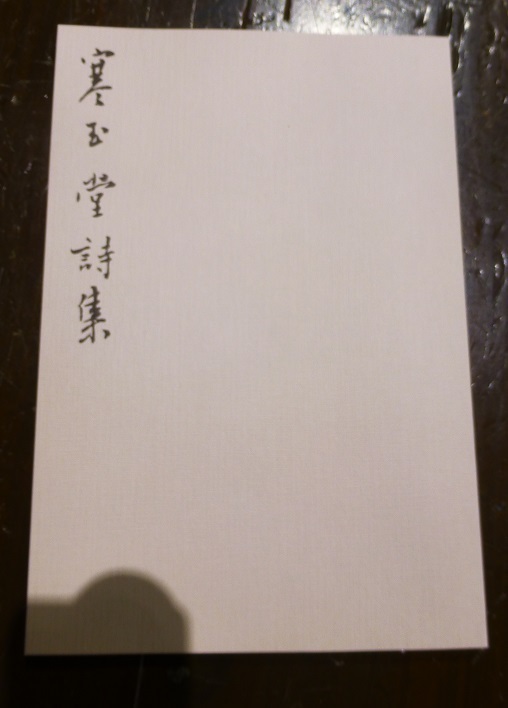 寒玉堂詩集